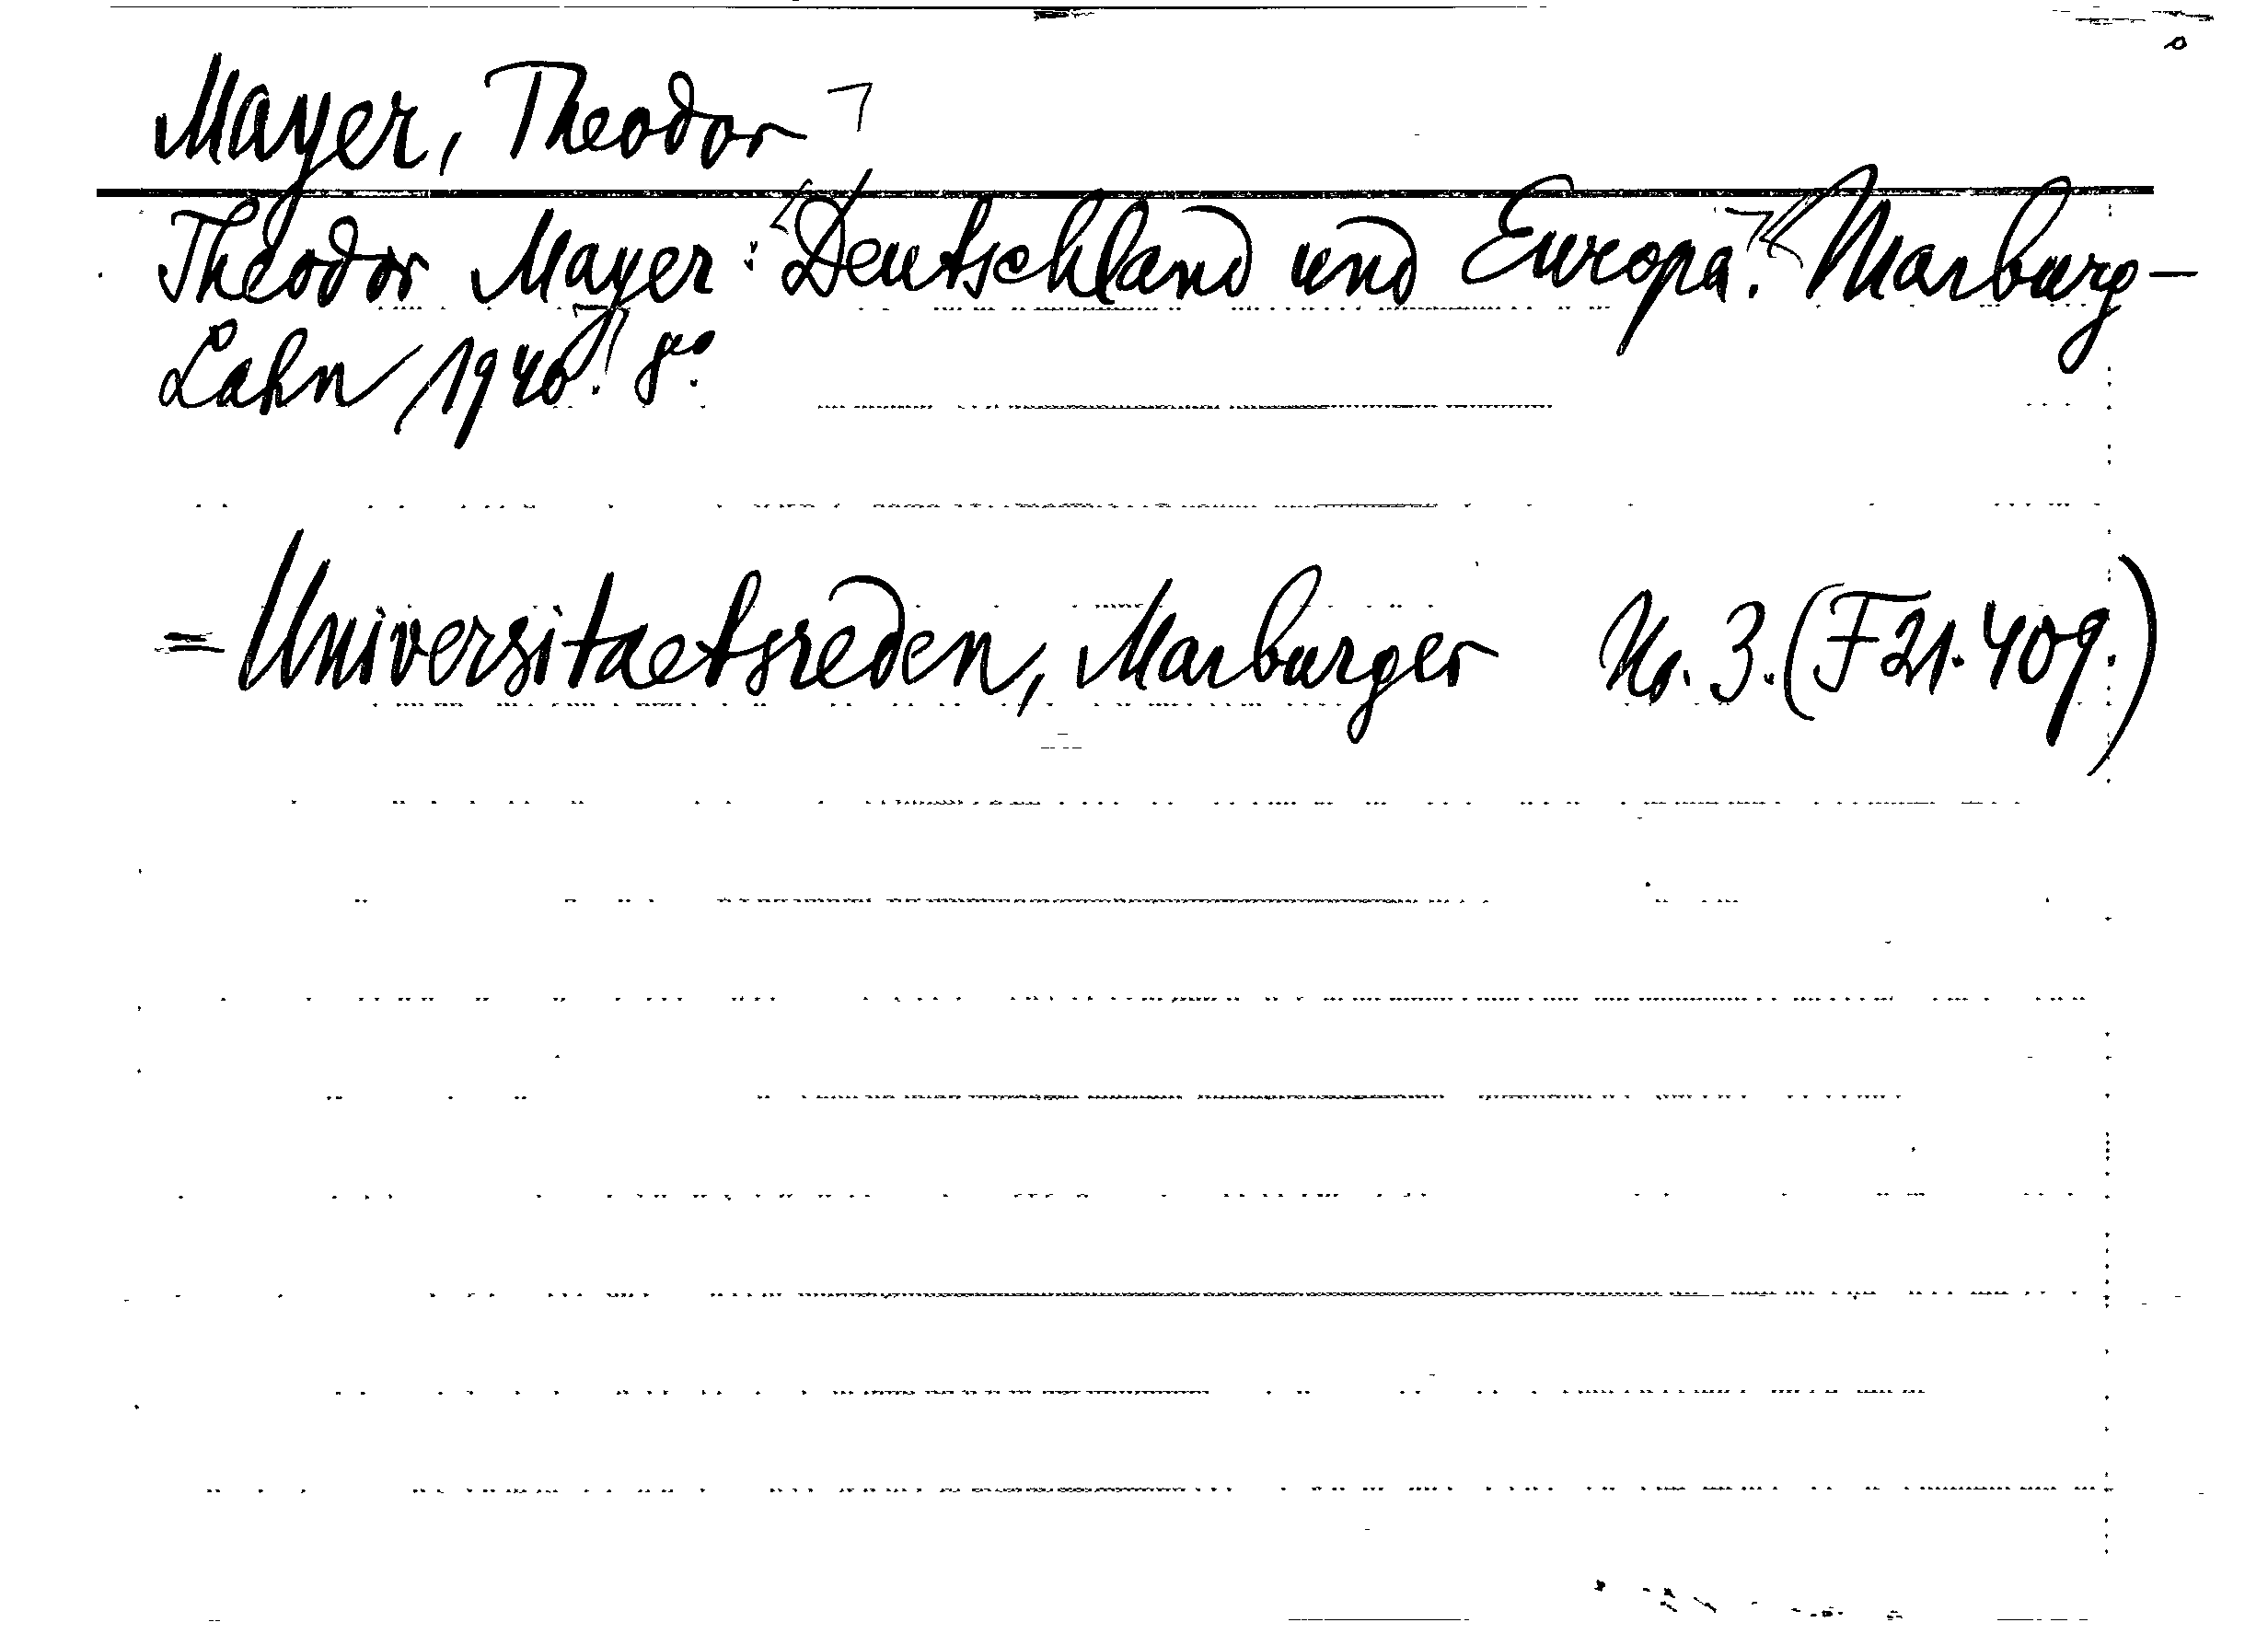 Mayer, Theodor
Theodor Mayer: Deutschland und Europa. Marburg-
Lahn 1940. 8°.
= Universitaetsreden, Marburger Nr. 3. (F 21. 409.)